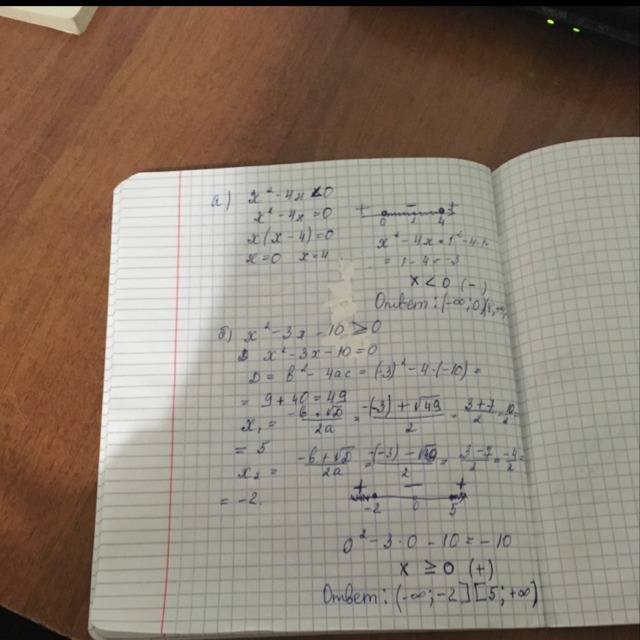 а) x² - 4x < 0
x² - 4x = 0
x(x - 4) = 0
x = 0 x = 4
+ - +
0 1 4
x² - 4x = 1² - 4·1 =
= 1 - 4 = -3
x < 0 (-)
Ответ: (-∞; 0)
б) x² - 3x - 10 ≥ 0
x² - 3x - 10 = 0
D = b² - 4ac = (-3)² - 4·(-10) =
= 9 + 40 = 49
x₁ = (-b + √D)/2a = (-(-3) + √49)/2 = (3+7)/2 = 10/2
= 5
x₂ = (-b + √D)/2a = (-(-3) - √49)/2 = (3-7)/2 = -4/2 =
= -2
+ - +
-2 0 5
0² - 3·0 - 10 = -10
x ≥ 0 (+)
Ответ: (-∞; -2][5; +∞)